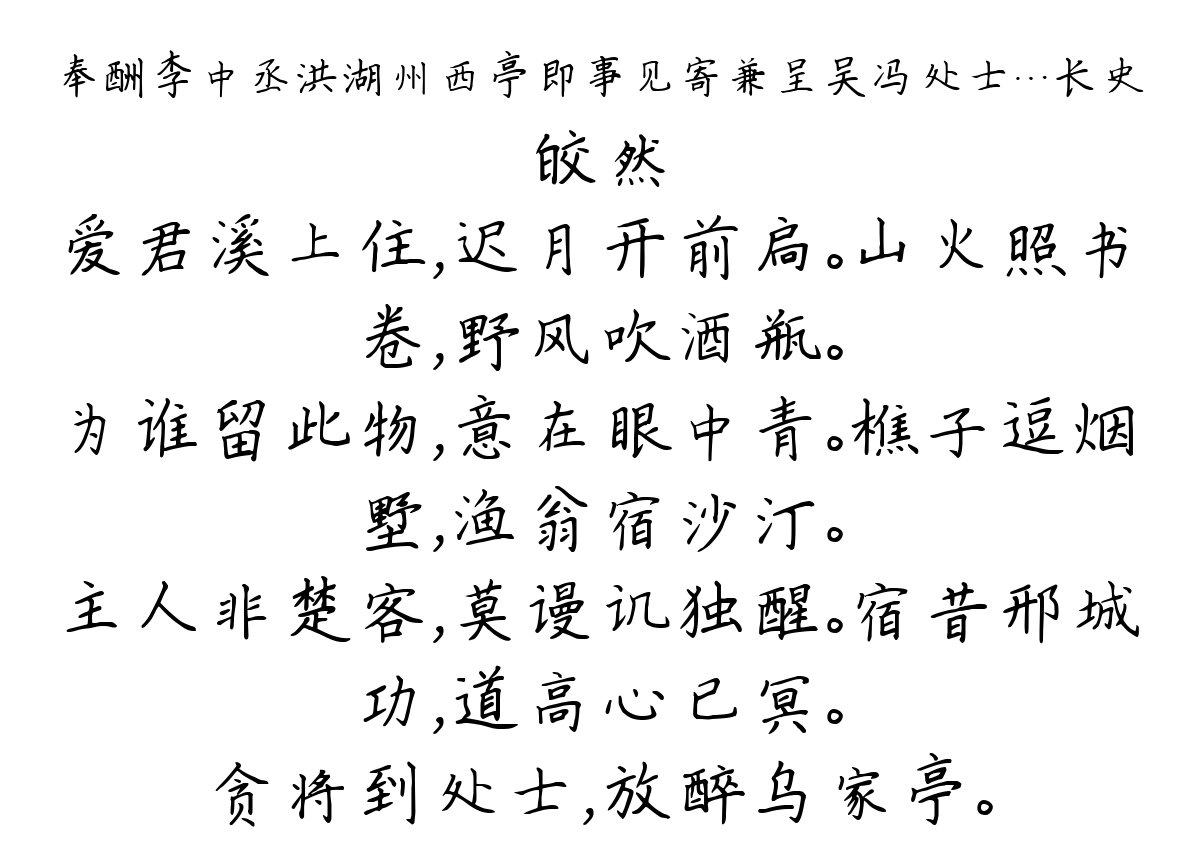 奉酬李中丞洪湖州西亭即事见寄兼呈吴冯处士…长史
皎然
爱君溪上住,迟月开前扃。山火照书
卷,野风吹酒瓶。
为谁留此物,意在眼中青。樵子逗烟
墅,渔翁宿沙汀。
主人非楚客,莫谩讥独醒。宿昔邢城
功,道高心已冥。
贪将到处士,放醉乌家亭。